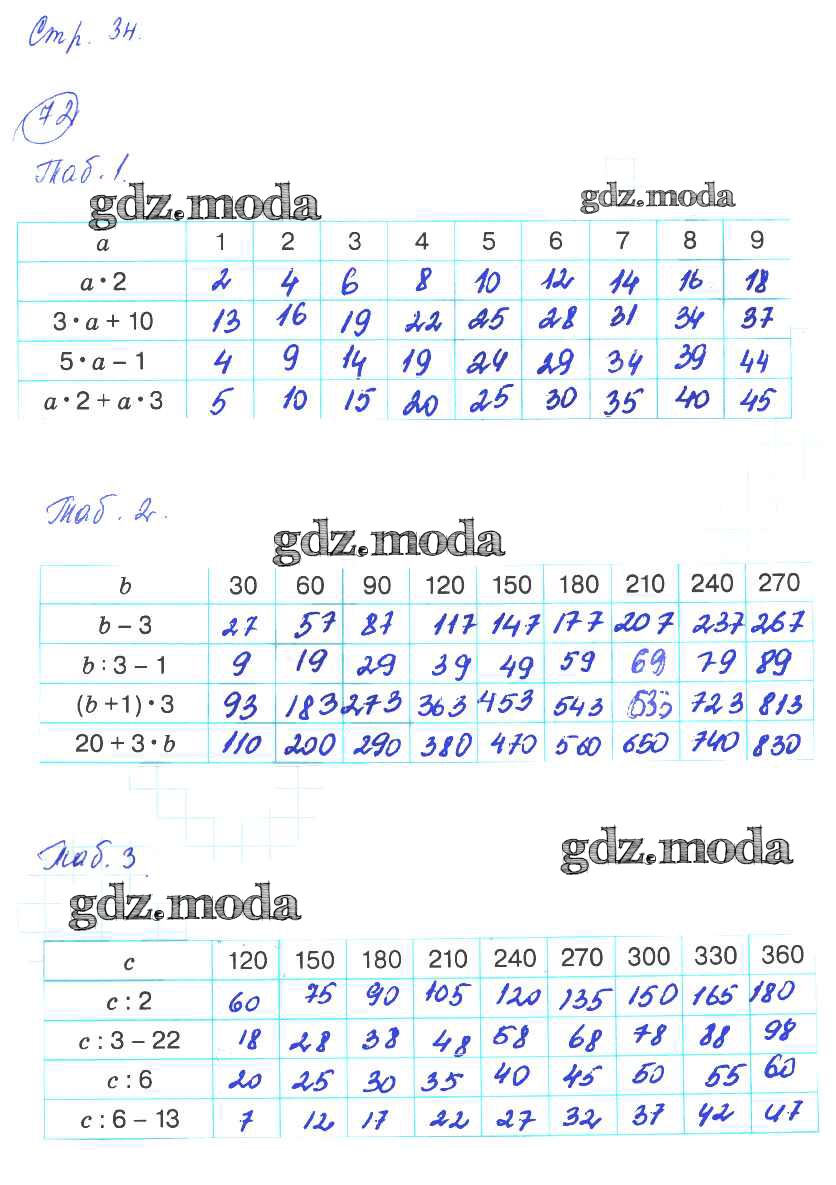 Стр. 34.
72
Таб. 1.
gdz.moda gdz.moda
a 1 2 3 4 5 6 7 8 9
a · 2 2 4 6 8 10 12 14 16 18
3 · a + 10 13 16 19 22 25 28 31 34 37
5 · a – 1 4 9 14 19 24 29 34 39 44
a · 2 + a · 3 5 10 15 20 25 30 35 40 45
Таб. 2.
gdz.moda
b 30 60 90 120 150 180 210 240 270
b – 3 27 57 87 117 147 177 207 237 267
b : 3 – 1 9 19 29 39 49 59 69 79 89
(b +1) · 3 93 183 273 363 453 543 723 813
20 + 3 · b 110 200 290 380 470 560 650 740 830
Таб. 3
gdz.moda
gdz.moda
c 120 150 180 210 240 270 300 330 360
c : 2 60 75 90 105 120 135 150 165 180
c : 3 – 22 18 28 38 48 58 68 78 88 98
c : 6 20 25 30 35 40 45 50 55 60
c : 6 – 13 7 12 17 22 27 32 37 42 47